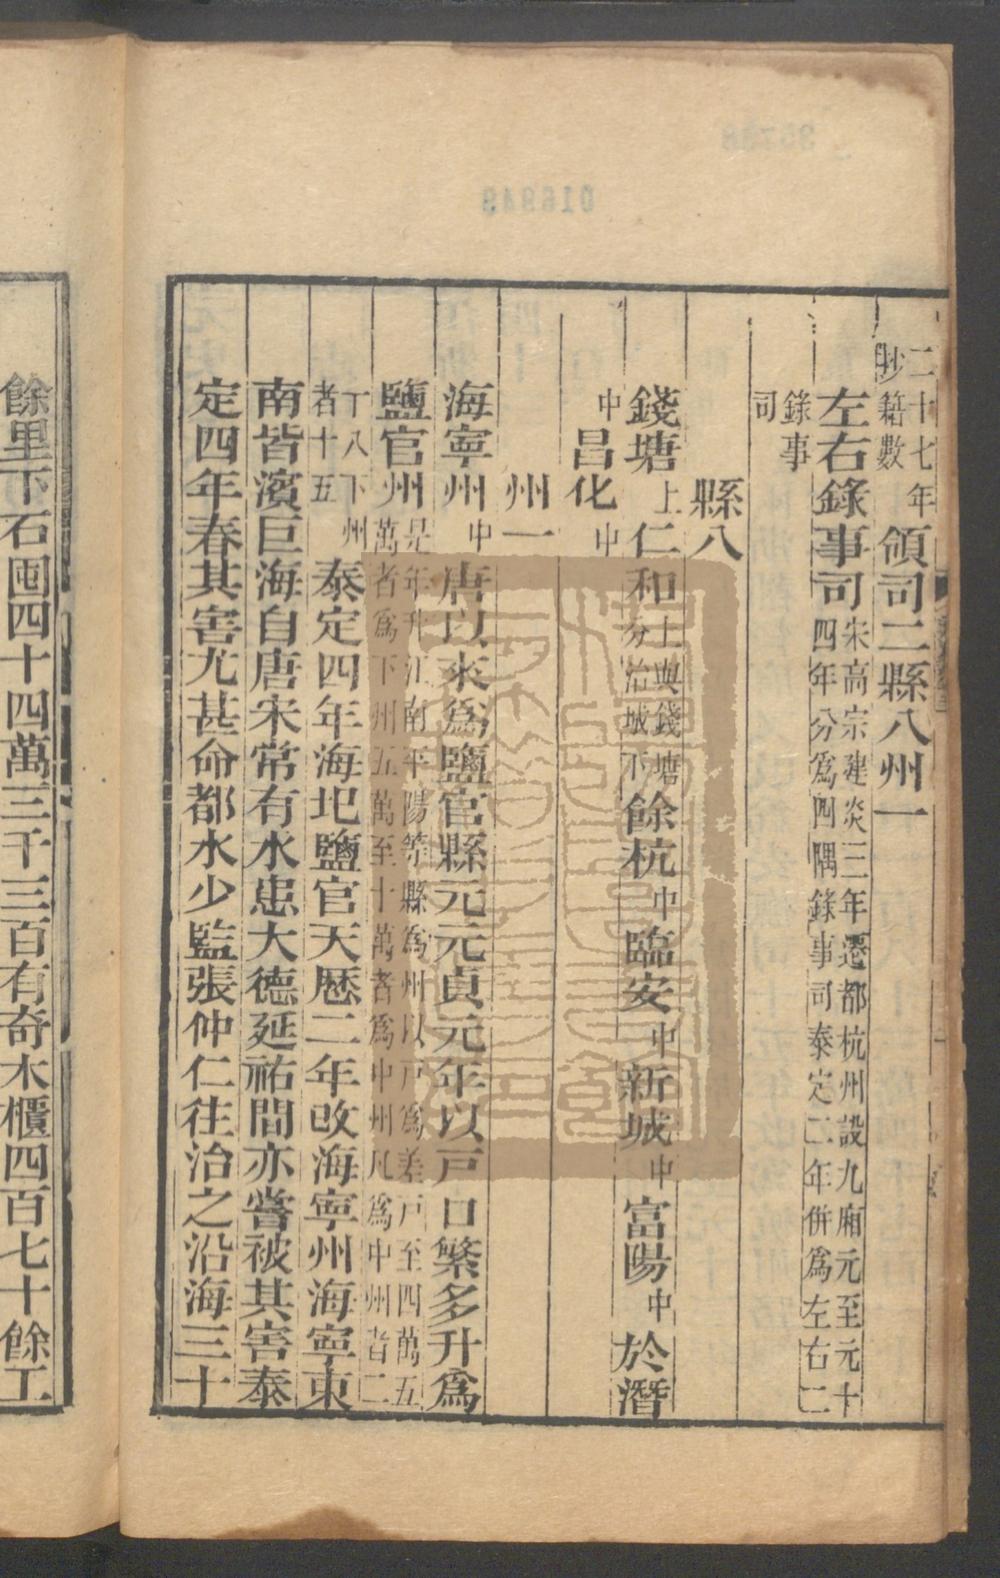 二十七年抄籍數領司二縣八州一
左右錄事司宋高宗建炎三年遷都杭州設九廂元至元十四年分為四隅錄事司泰定二年併為左右二
錄事司
縣八
錢塘上仁和上與錢塘分治城下餘杭中臨安中新城中富陽中於潛
中昌化中
州一
海寧州中唐以來為鹽官縣元元貞元年以戶口繁多升為
鹽官州是年升江南平陽等縣為州以戶為差戶至四萬五萬者為下州五萬至十萬者為中州凡為中州者二
十八下州者十五泰定四年海圮鹽官天歷二年改海寧州海寧東
南皆濱巨海自唐宋常有水患大德延祐間亦嘗被其害泰
定四年春其害尤甚命都水少監張仲仁往治之沿海三十
餘里下石囤四十四萬三千三百有奇木櫃四百七十餘工